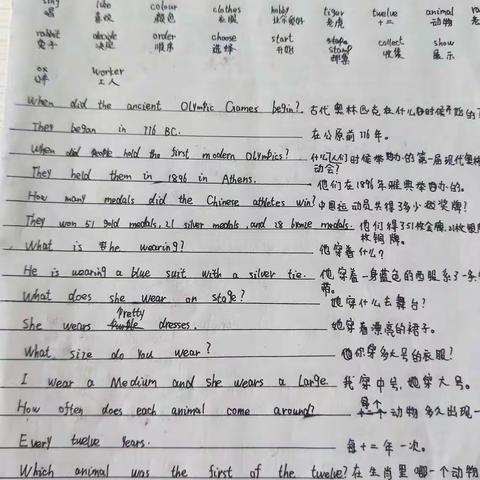 sing like colour clothes hobby tiger twelve animal
唱 喜欢 颜色 衣服 业余爱好 老虎 十二 动物
rabbit decide order choose start stamp collect show
兔子 决定 顺序 选择 开始 邮票 收集 展示
ox worker
牛 工人
When did the ancient Olympic Games begin? 古代奥林匹克在什么时候开始的?
They began in 776 BC. 在公元前776年。
When did people hold the first modern Olympics? 什么时候举办的第一届现代奥林
动会?
They held them in 1896 in Athens. 他们在1896年雅典举办的。
How many medals did the Chinese athletes win? 中国运动员共得了多少枚奖牌?
They won 51 gold medals, 21 silver medals, and 28 bronze medals. 他们得了51枚金牌,21枚银
枚铜牌。
What is he wearing? 他穿着什么?
He is wearing a blue suit with a silver tie. 他穿着一身蓝色的西服系了一条
带。
What does she wear on stage? 她穿什么去舞台?
She wears pretty dresses. 她穿着漂亮的裙子。
What size do you wear? 你穿多大号的衣服?
I wear a Medium and she wears a Large. 我穿中号,她穿大号。
How often does each animal come around? 每个动物多久出现一
Every twelve years. 每十二年一次。
Which animal was the first of the twelve? 在生肖里哪一个动物